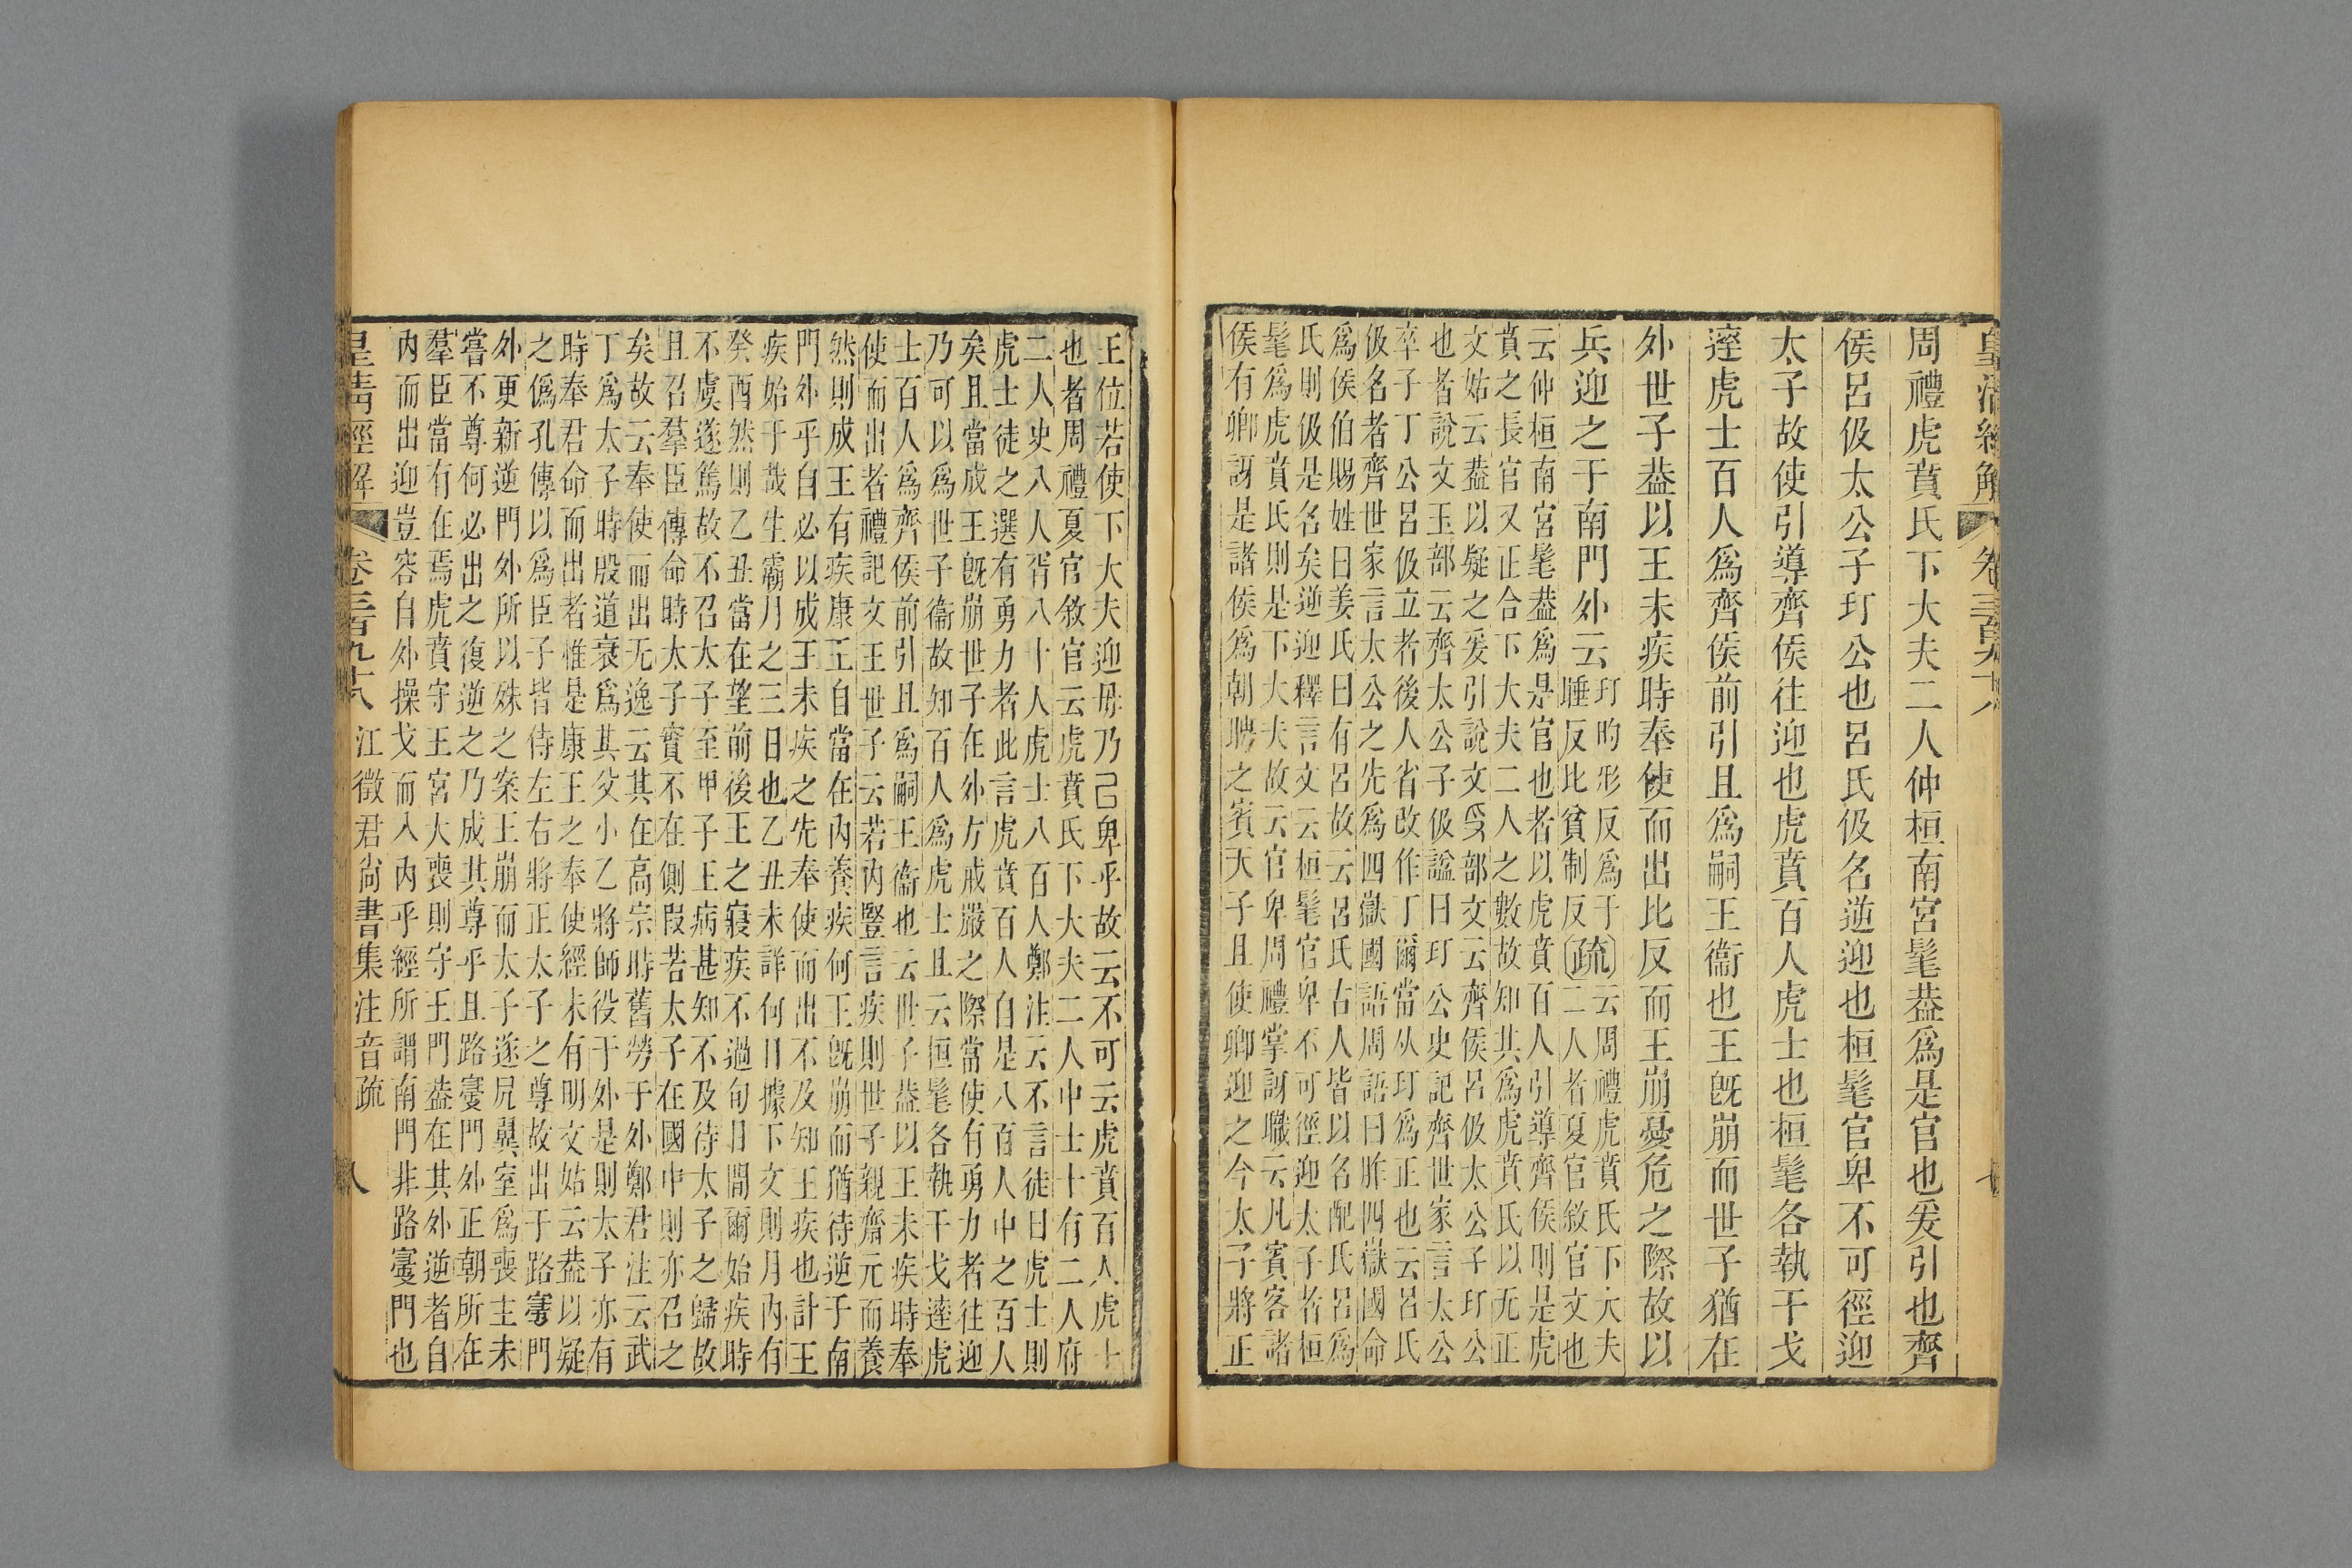 皇清經解 卷三百九十八 七
周禮虎賁氏下大夫二人仲桓南宮髦葢爲是官也爰引也齊
侯呂伋太公子玎公也呂氏伋名逆迎也桓髦官卑不可徑迎
太子故使引導齊侯往迎也虎賁百人虎士也桓髦各執干戈
達虎士百人爲齊侯前引且爲嗣王衞也王旣崩而世子猶在
外世子葢以王未疾時奉使而出比反而王崩憂危之際故以
兵迎之于南門外云
玎昀形反爲于
睡反比貧制反
疏
云周禮虎賁氏下大夫
二人者夏官敘官文也
云仲桓南宮髦葢爲是官也者以虎賁百人引導齊侯則是虎
賁之長官又正合下大夫二人之數故知其爲虎賁氏以无正
文姑云葢以疑之爰引說文𠬪部文云齊侯呂伋太公子玎公
也者說文玉部云齊太公子伋諡曰玎公史記齊世家言太公
卒子丁公呂伋立者後人省改作丁爾當从玎爲正也云呂氏
伋名者齊世家言太公之先爲四嶽國語周語曰胙四嶽國命
爲侯伯賜姓曰姜氏曰有呂故云呂氏古人皆以名配氏呂爲
氏則伋是名矣逆迎釋言文云桓髦官卑不可徑迎太子者桓
髦爲虎賁氏則是下大夫故云官卑周禮掌訝職云凡賓客諸
侯有卿訝是諸侯爲朝聘之賓天子且使卿迎之今太子將正
王位若使下大夫迎毋乃已卑乎故云不可云虎賁百人虎士
也者周禮夏官敘官云虎賁氏下大夫二人中士十有二人府
二人史八人胥八十人虎士八百人鄭注云不言徒曰虎士則
虎士徒之選有勇力者此言虎賁百人自是八百人中之百人
矣且當成王旣崩世子在外方戒嚴之際當使有勇力者往迎
乃可以爲世子衞故知百人爲虎士且云桓髦各執干戈達虎
士百人爲齊侯前引且爲嗣王衞也云世子葢以王未疾時奉
使而出者禮記文王世子云若內豎言疾則世子親齋元而養
然則成王有疾康王自當在內養疾何王旣崩而猶待逆于南
門外乎自必以成王未疾之先奉使而出不及知王疾也計王
疾始于哉生霸月之三日也乙丑未詳何日據下文則月內有
癸酉然則乙丑當在望前後王之寢疾不過旬日間爾始疾時
不虞遂篤故不召太子至甲子王病甚知不及待太子之歸故
且召羣臣傳命時太子實不在側叚若太子在國中則亦召之
矣故云奉使而出无逸云其在高宗時舊勞于外鄭君注云武
丁爲太子時殷道衰爲其父小乙將師役于外是則太子亦有
時奉君命而出者惟是康王之奉使經未有明文姑云葢以疑
之僞孔傳以爲臣子皆侍左右將正太子之尊故出于路寢門
外更新逆門外所以殊之案王崩而太子遂尻翼室爲喪主未
嘗不尊何必出之復逆之乃成其尊乎且路寢門外正朝所在
羣臣當有在焉虎賁守王宮大喪則守王門葢在其外逆者自
內而出迎豈容自外操戈而入內乎經所謂南門非路寢門也
皇清經解 卷三百九十八 江徵君尙書集注音疏 八